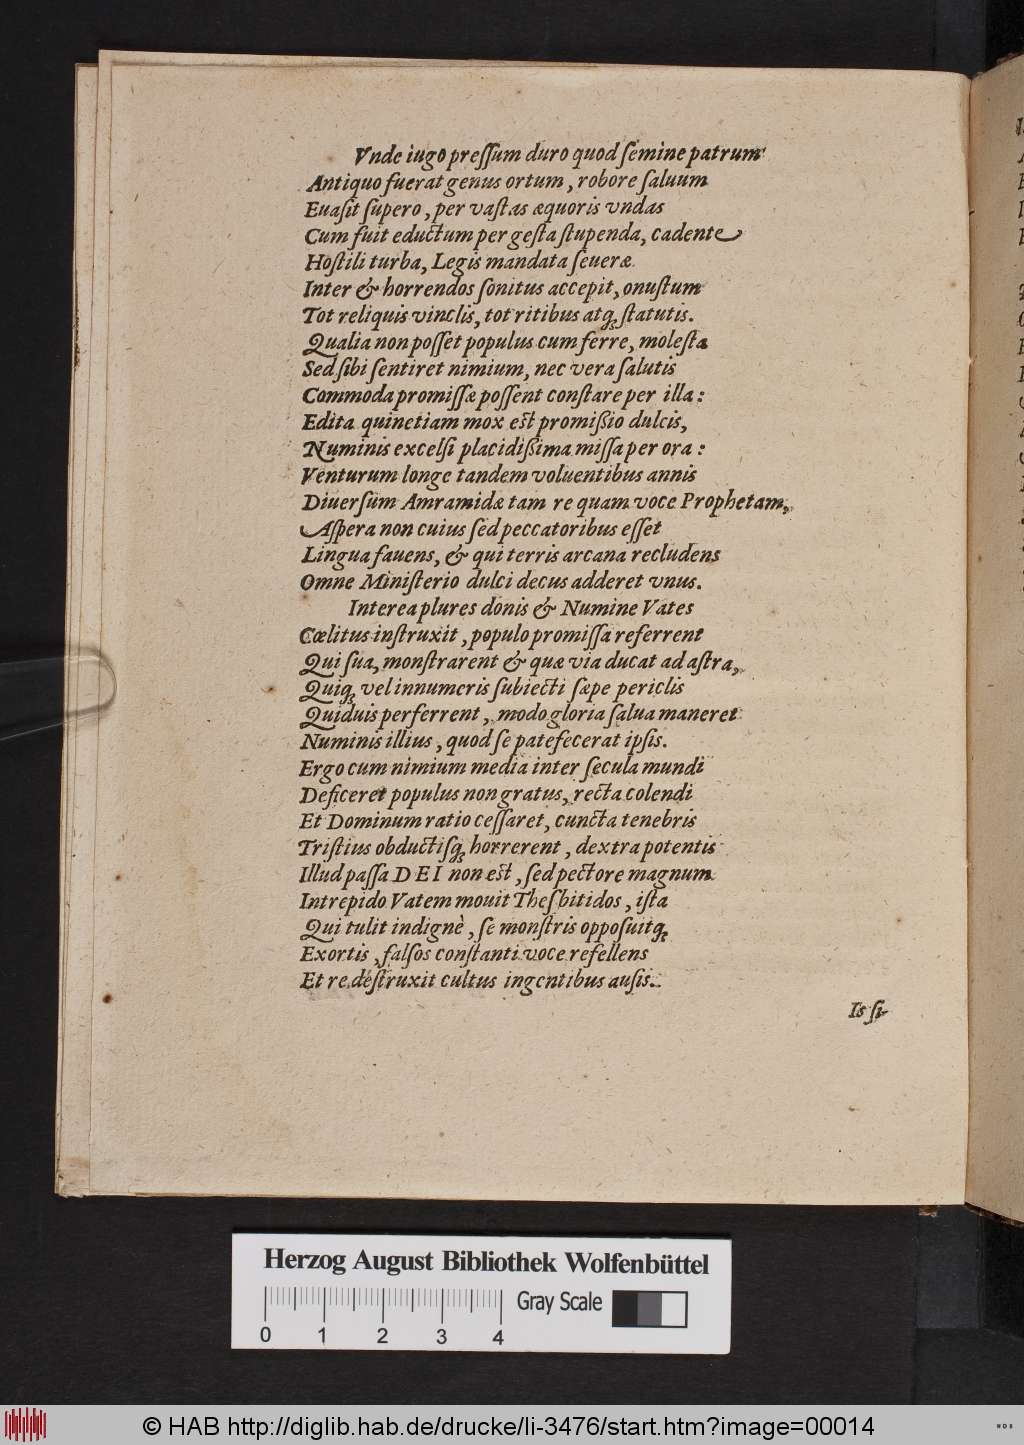 Vnde iugo preſſum duro quod ſemine patrum
Antiquo fuerat genus ortum, robore ſaluum
Euaſit ſupero, per vaſtas æquoris vndas
Cum fuit eductum per geſta ſtupenda, cadente
Hoſtili turba, Legis mandata ſeueræ
Inter & horrendos ſonitus accepit, onuſtum
Tot reliquis vinclis, tot ritibus atq́ꝫ ſtatutis.
Qualia non poſſet populus cum ferre, moleſta
Sed ſibi ſentiret nimium, nec vera ſalutis
Commoda promiſſæ poſſent conſtare per illa:
Edita quinetiam mox est promißio dulcis,
Numinis excelſi placidißima miſſa per ora:
Venturum longe tandem voluentibus annis
Diuerſum Amramidæ tam re quam voce Prophetam,
Aſpera non cuius ſed peccatoribus eſſet
Lingua fauens, & qui terris arcana recludens
Omne Miniſterio dulci decus adderet vnus.
Interea plures donis & Numine Vates
Cœlitus inſtruxit, populo promiſſa referrent
Qui ſua, monſtrarent & quæ via ducat ad aſtra,
Quiq́ꝫ vel innumeris ſubiecti ſæpe periclis
Quiduis perferrent, modo gloria ſalua maneret
Numinis illius, quod ſe patefecerat ipſis.
Ergo cum nimium media inter ſecula mundi
Deficeret populus non gratus, recta colendi
Et Dominum ratio ceſſaret, cuncta tenebris
Triſtius obductiſq́ꝫ horrerent, dextra potentis
Illud paſſa DEI non est, ſed pectore magnum
Intrepido Vatem mouit Thesbitidos, iſta
Qui tulit indignè, ſe monſtris oppoſuitq́ꝫ
Exortis, falſos conſtanti voce refellens
Et re deſtruxit cultus ingentibus auſis.
Is ſi
Herzog August Bibliothek Wolfenbüttel
Gray Scale
0 1 2 3 4
© HAB http://diglib.hab.de/drucke/li-3476/start.htm?image=00014